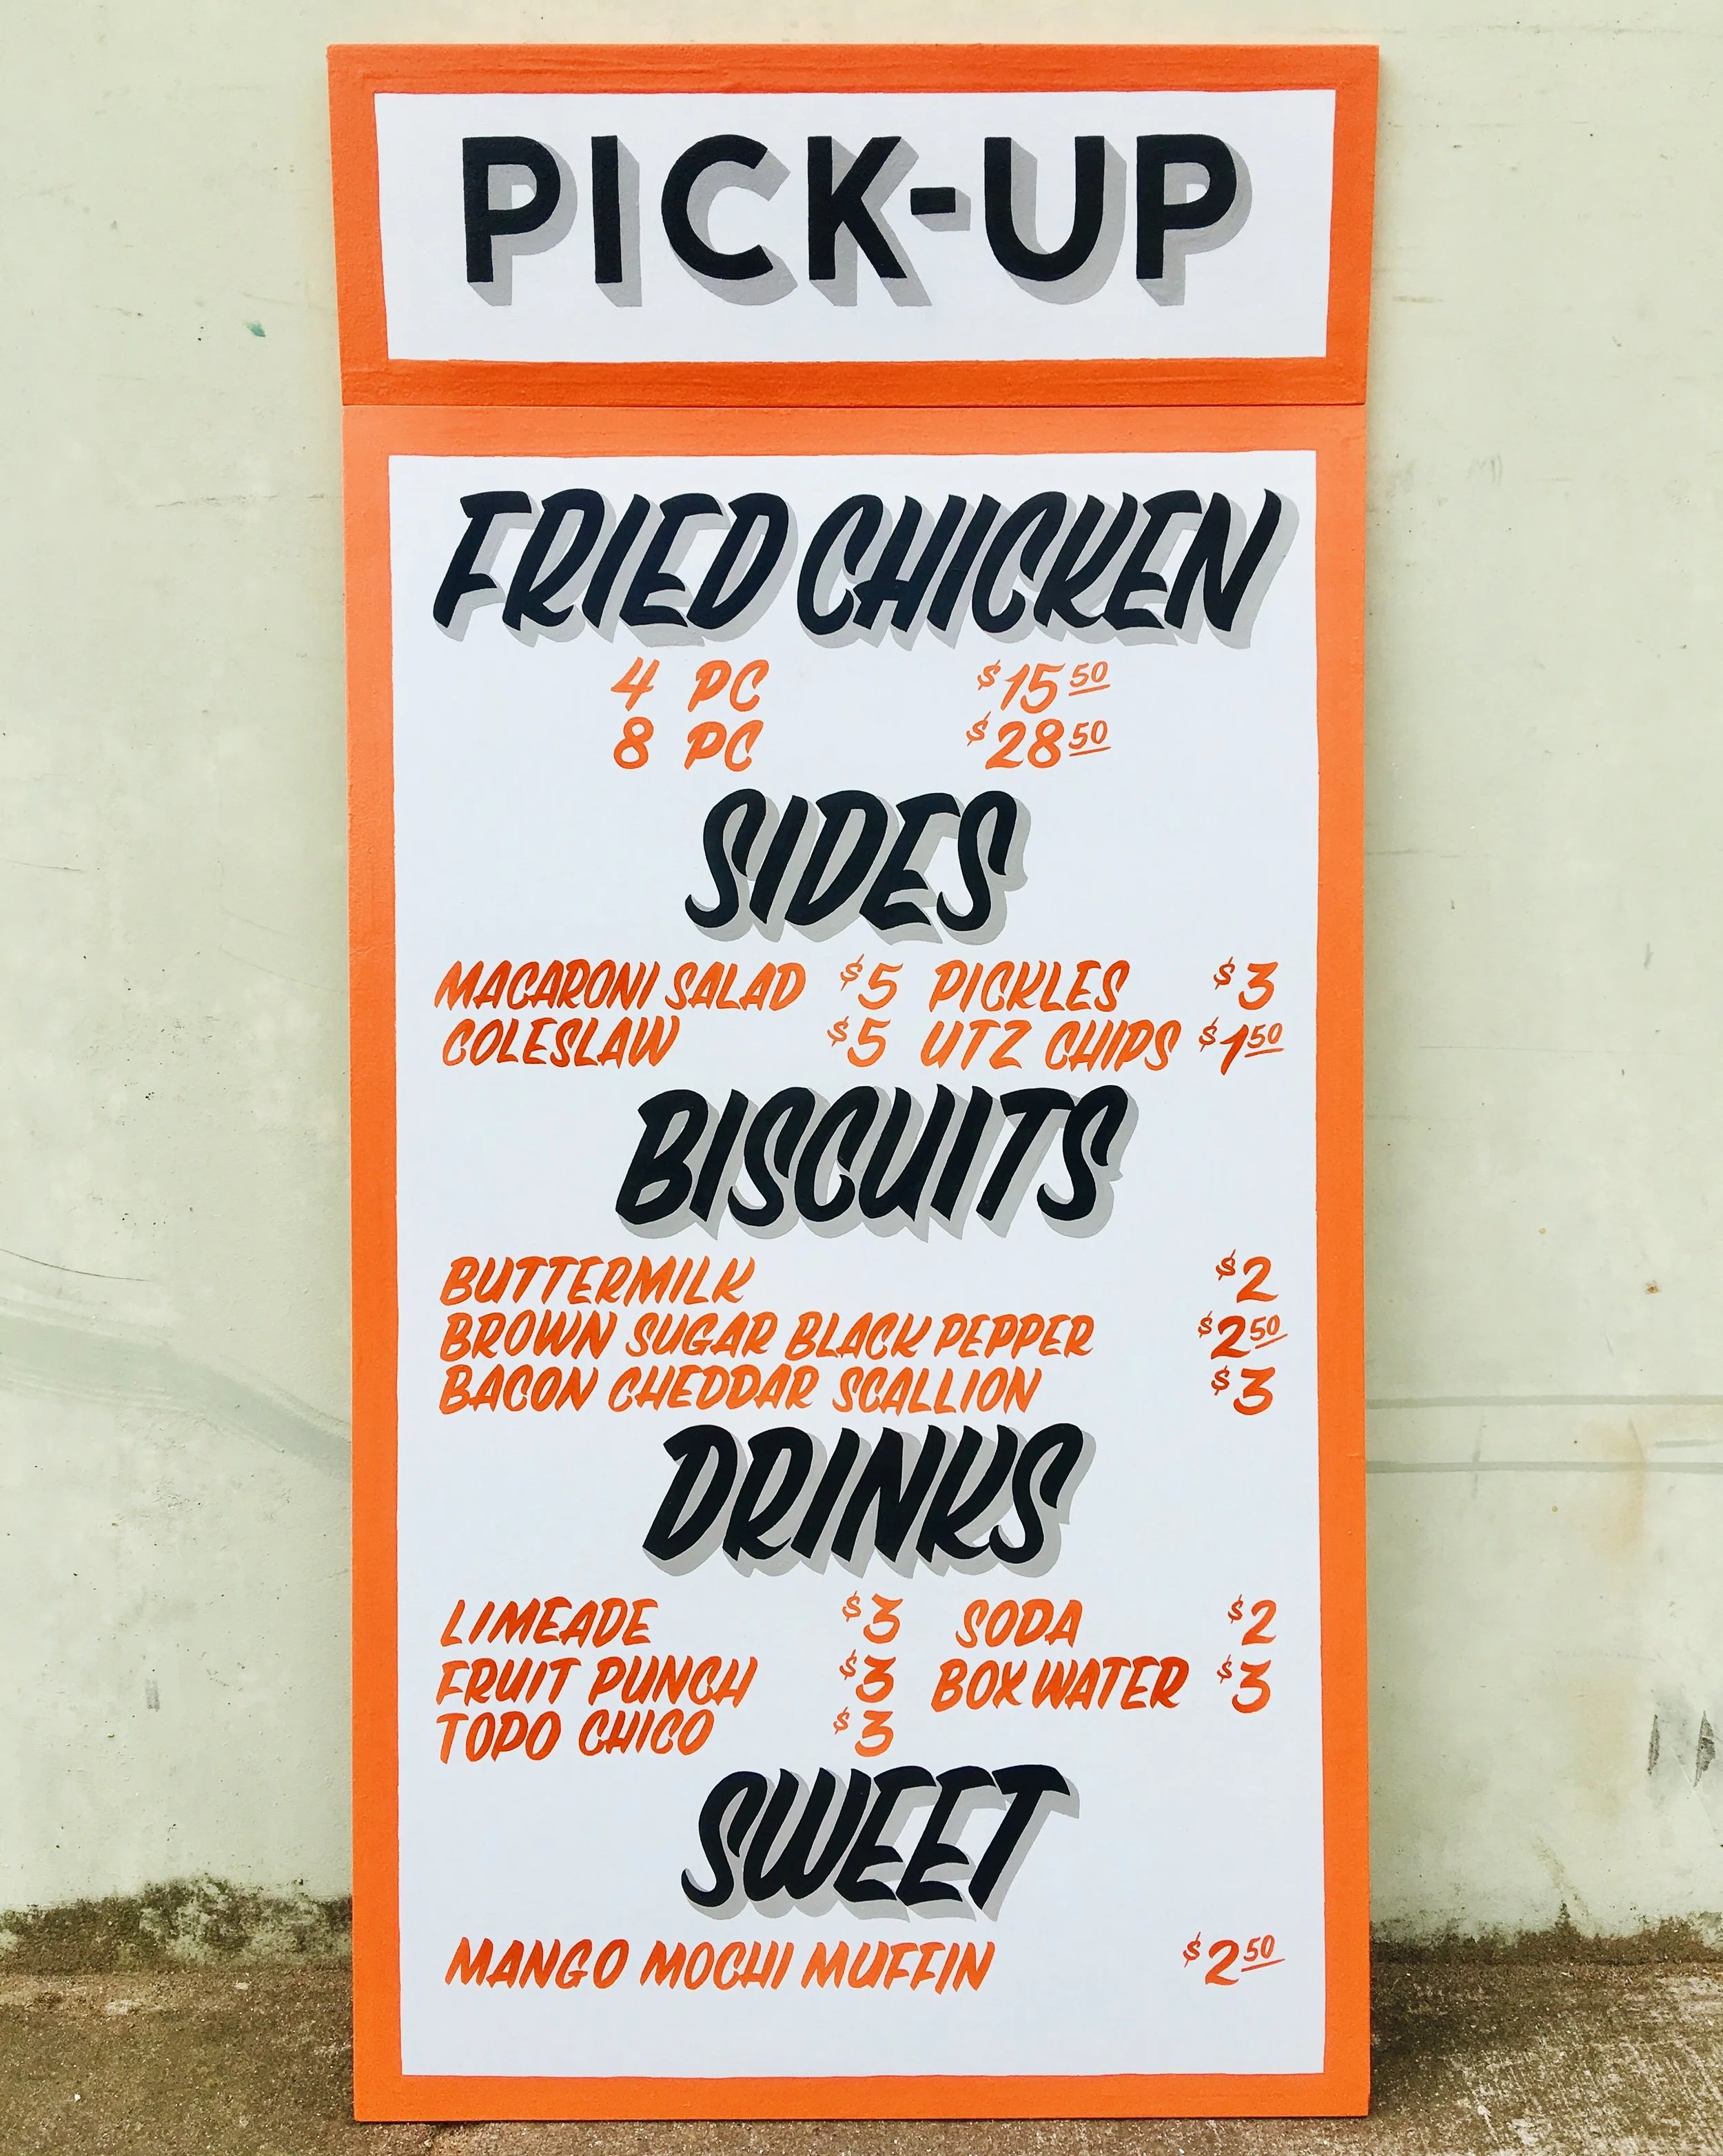 PICK-UP
FRIED CHICKEN
4 PC $15 50
8 PC $28 50
SIDES
MACARONI SALAD $5 PICKLES $3
COLESLAW $5 UTZ CHIPS $1 50
BISCUITS
BUTTERMILK $2
BROWN SUGAR BLACK PEPPER $2 50
BACON CHEDDAR SCALLION $3
DRINKS
LIMEADE $3 SODA $2
FRUIT PUNCH $3 BOX WATER $3
TOPO CHICO $3
SWEET
MANGO MOCHI MUFFIN $2 50